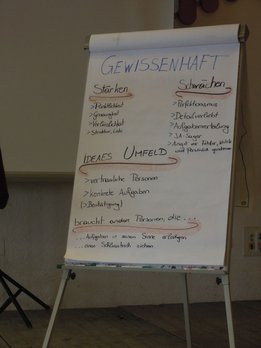 GEWISSENHAFT
Stärken
> Pünktlichkeit
> Genauigkeit
> Verlässlichkeit
> Struktur, Liste
Schwächen
> Perfektionismus
> Detailverliebt
> Aufgabenverteilung
> JA-Sager
> Angst vor Fehler, Kritik
und Persönlich genommen
IDEALES UMFELD
> vertrauliche Personen
> konkrete Aufgaben
(> Bestätigung)
braucht andere Personen, die ...
... Aufgaben in seinem Sinne erledigen
... einen Schlussstrich ziehen